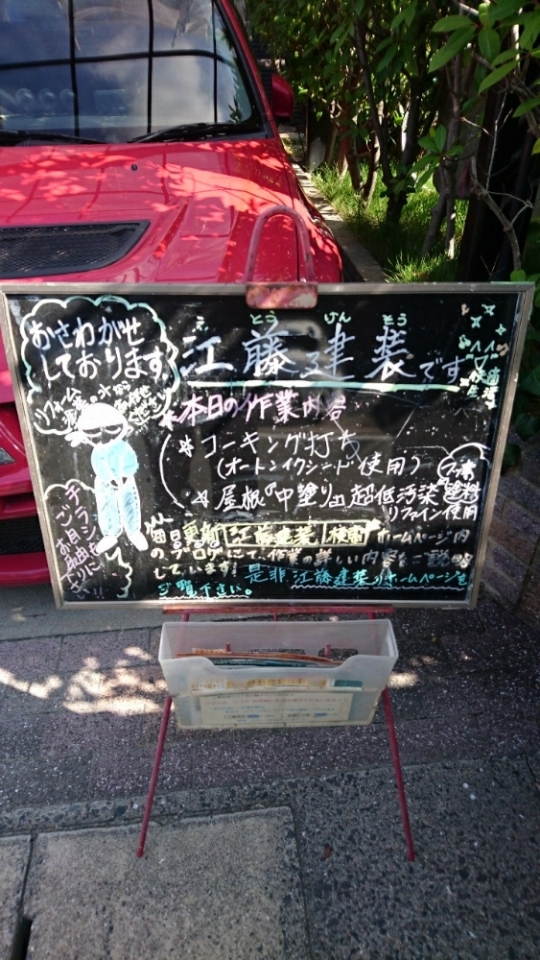 おさわがせ
しております
えとうけんそう
江藤建装です
リフォーム
*本日の作業内容
☆コーキング打ち
(オートンイクシード使用)
☆屋根の中塗り
超低汚染
塗料
リファイン使用
チラシも
ご自由に
お取り
下さい
毎日更新 江藤建装 検索 ホームページ内
のブログにて、作業の詳しい内容をご説明
しています! 是非江藤建装のホームページを
ご覧下さい。